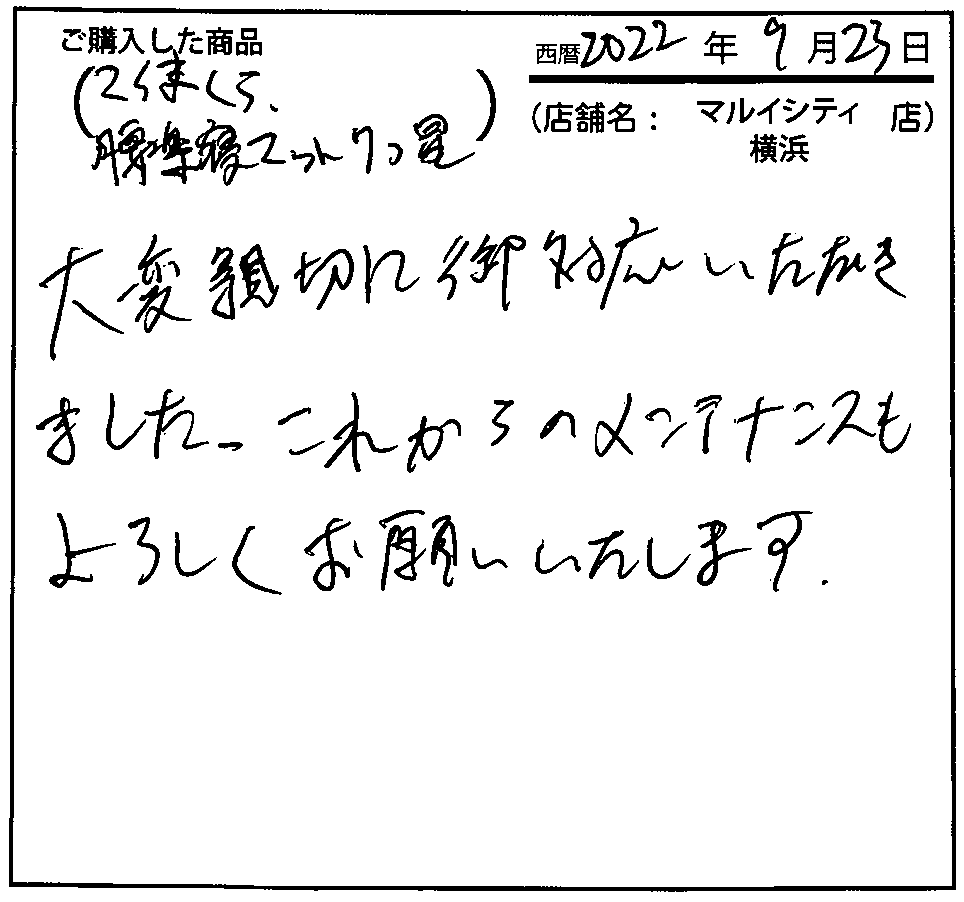 ご購入した商品
西暦2022年9月23日
(店舗名: マルイシティ横浜 店)
まくら、
腰楽寝マット
大変親切に御対応いただき
ました。これからのメンテナンスも
よろしくお願いいたします.